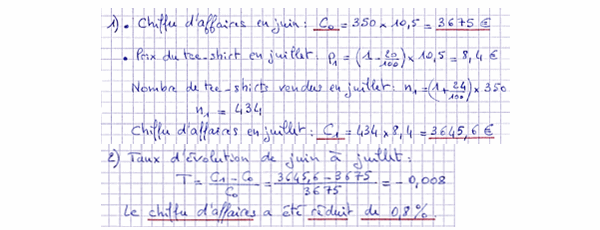 1) • Chiffre d'affaires en juin : C₀ = 350 × 10,5 = 3675 €
• Prix du tee-shirt en juillet : p₁ = (1 - 20/100) × 10,5 = 8,4 €
Nombre de tee-shirts vendus en juillet : n₁ = (1 + 24/100) × 350
n₁ = 434
Chiffre d'affaires en juillet : C₁ = 434 × 8,4 = 3645,6 €
2) Taux d'évolution de juin à juillet :
T = (C₁ - C₀)/C₀ = (3645,6 - 3675)/3675 = - 0,008
Le chiffre d'affaires a été réduit de 0,8%.